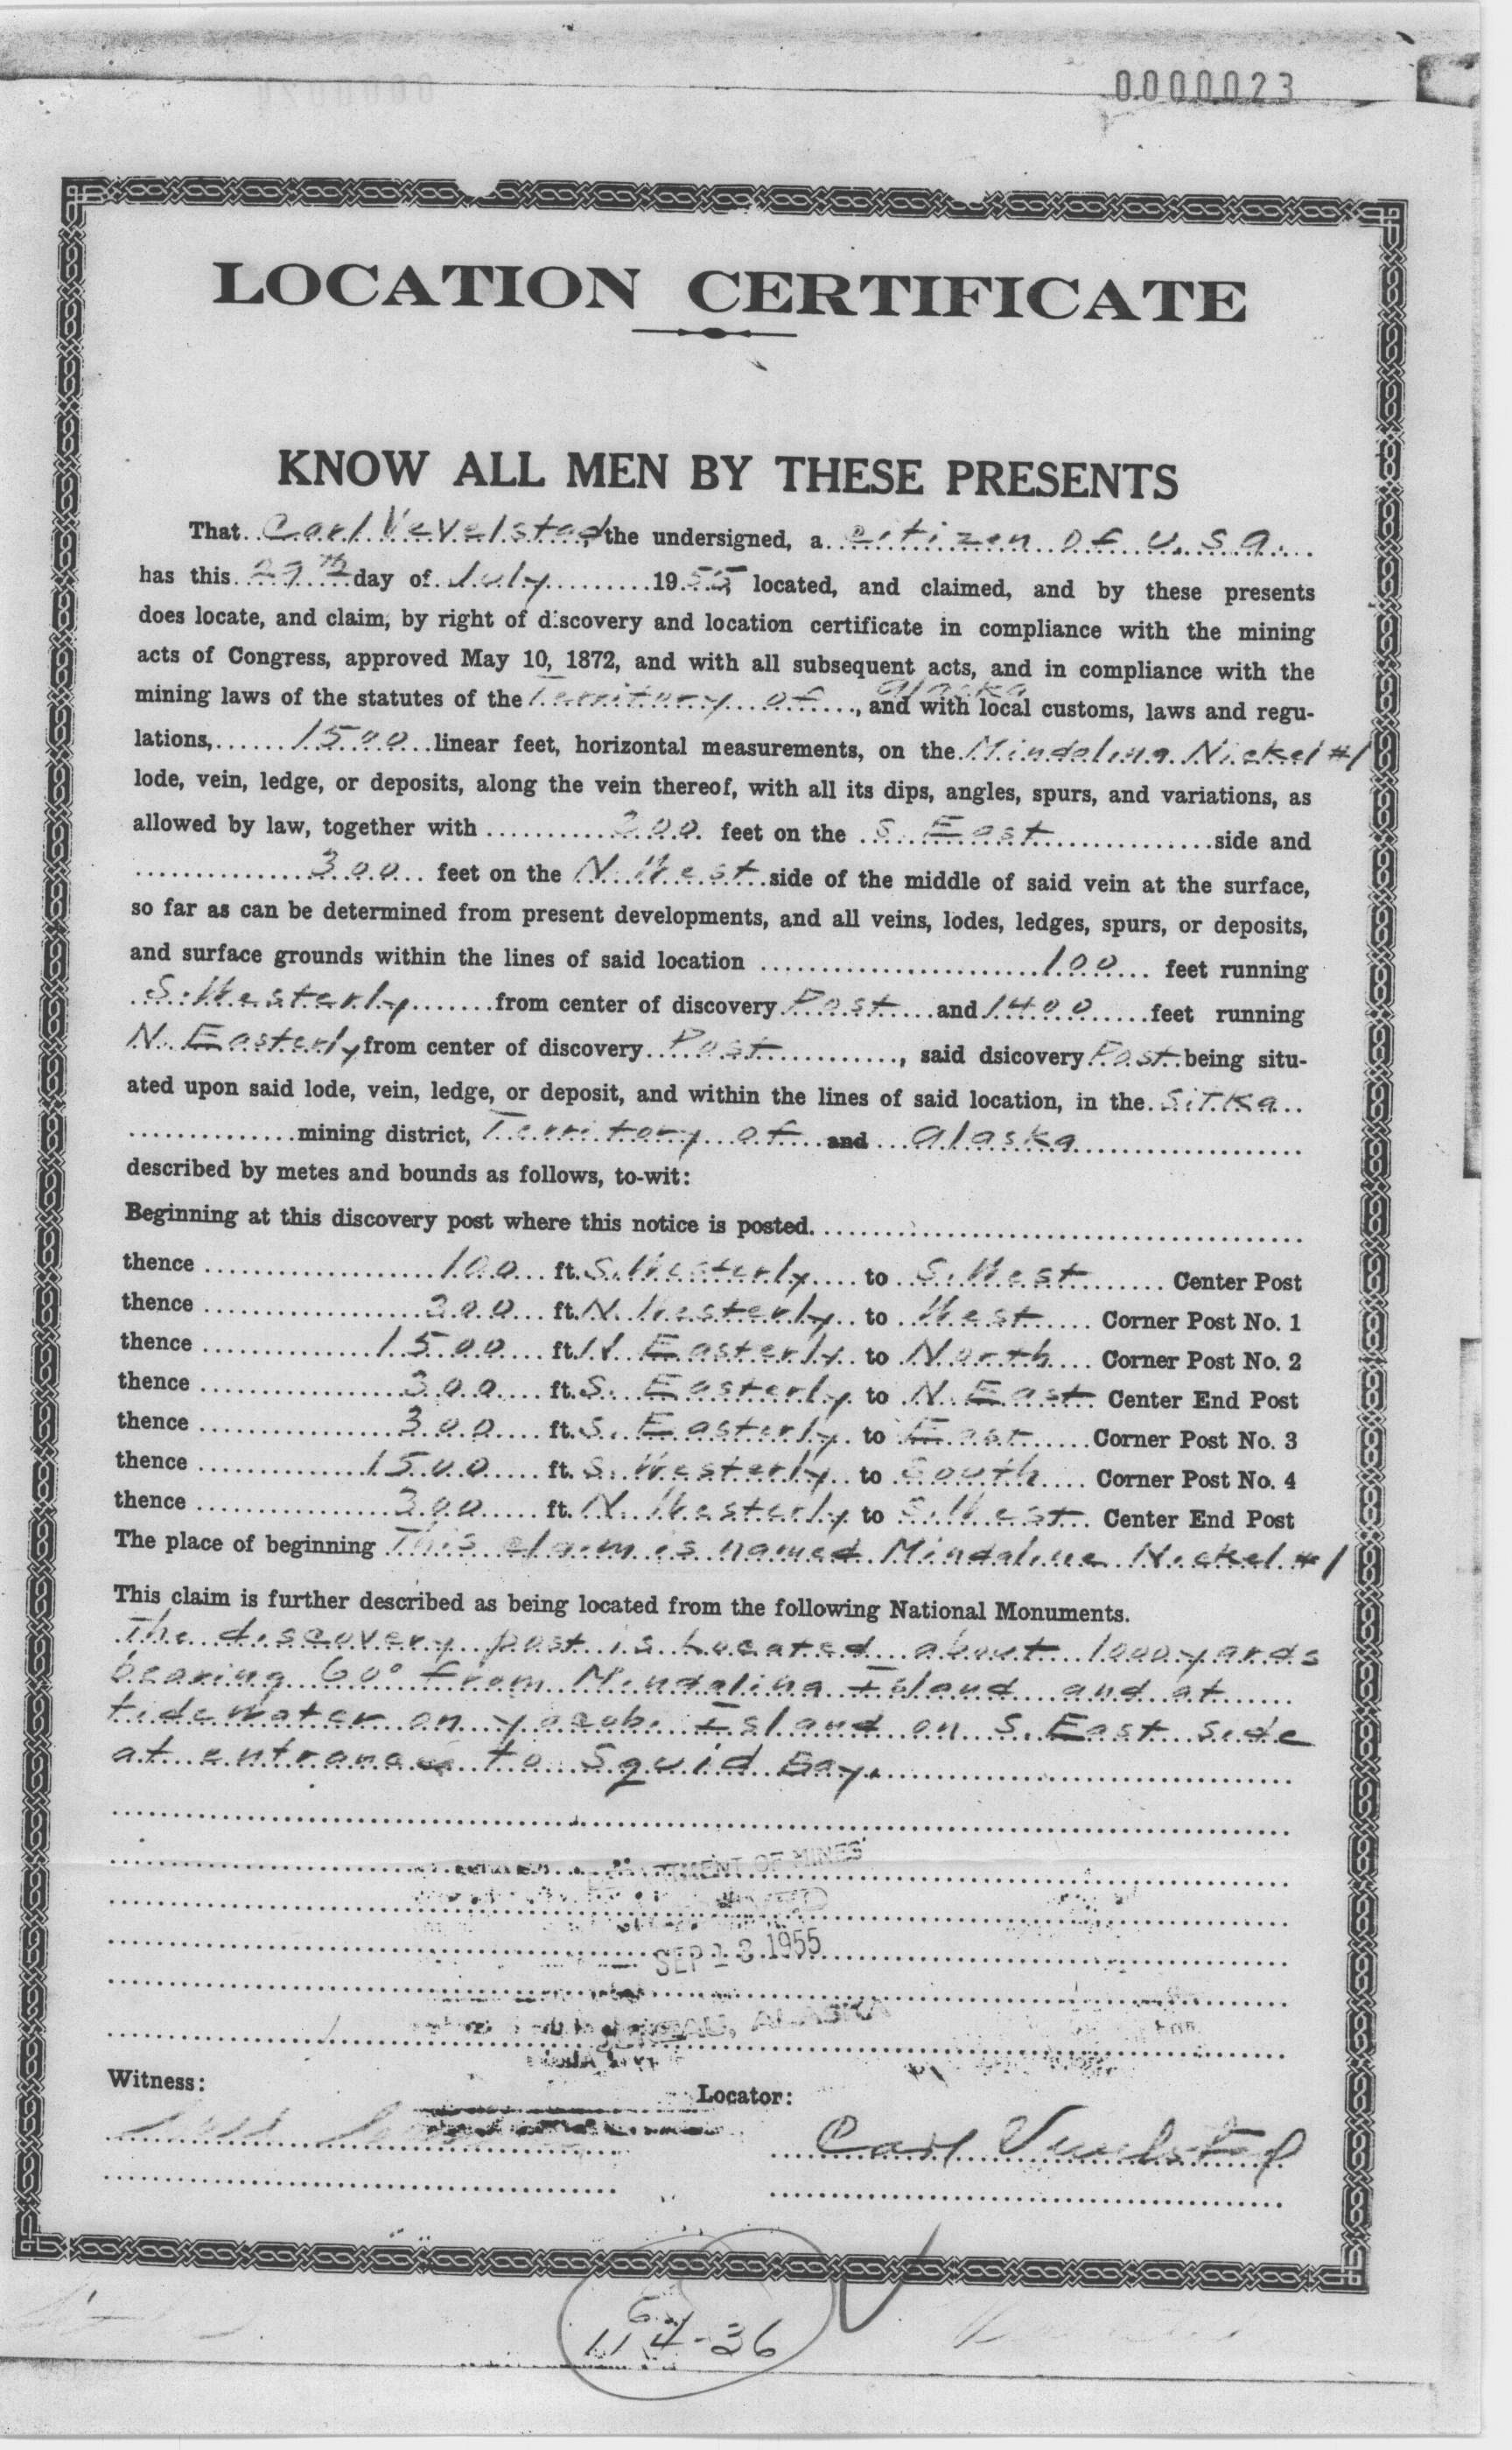 0000023
LOCATION CERTIFICATE
KNOW ALL MEN BY THESE PRESENTS
That Carl Vevelstad, the undersigned, a citizen of U.S.A.
has this 29th day of July 1955 located, and claimed, and by these presents
does locate, and claim, by right of discovery and location certificate in compliance with the mining
acts of Congress, approved May 10, 1872, and with all subsequent acts, and in compliance with the
mining laws of the statutes of the Territory of Alaska, and with local customs, laws and regu-
lations, 1500 linear feet, horizontal measurements, on the Mindalina Nickel #1
lode, vein, ledge, or deposits, along the vein thereof, with all its dips, angles, spurs, and variations, as
allowed by law, together with 300 feet on the S. East side and
300 feet on the N. West side of the middle of said vein at the surface,
so far as can be determined from present developments, and all veins, lodes, ledges, spurs, or deposits,
and surface grounds within the lines of said location 100 feet running
S. Westerly from center of discovery Post and 1400 feet running
N. Easterly from center of discovery Post, said dsicovery Post being situ-
ated upon said lode, vein, ledge, or deposit, and within the lines of said location, in the Sitka
mining district, Territory of and Alaska
described by metes and bounds as follows, to-wit:
Beginning at this discovery post where this notice is posted.
thence 100 ft. S. Westerly to S. West Center Post
thence 300 ft. N. Westerly to West Corner Post No. 1
thence 1500 ft. N. Easterly to North Corner Post No. 2
thence 300 ft. S. Easterly to N. East Center End Post
thence 300 ft. S. Easterly to East Corner Post No. 3
thence 1500 ft. S. Westerly to South Corner Post No. 4
thence 300 ft. N. Westerly to S. West Center End Post
The place of beginning This claim is named Mindalina Nickel #1
This claim is further described as being located from the following National Monuments.
The discovery post is Located about 1000 yards
bearing 60° from Mindalina Island and at
tidewater on Yacobi Island on S. East side
at entrance to Squid Bay.
DEPARTMENT OF MINES
SEP 13 1955
JUNEAU, ALASKA
Witness:
Locator:
Carl Vevelstad
114-36